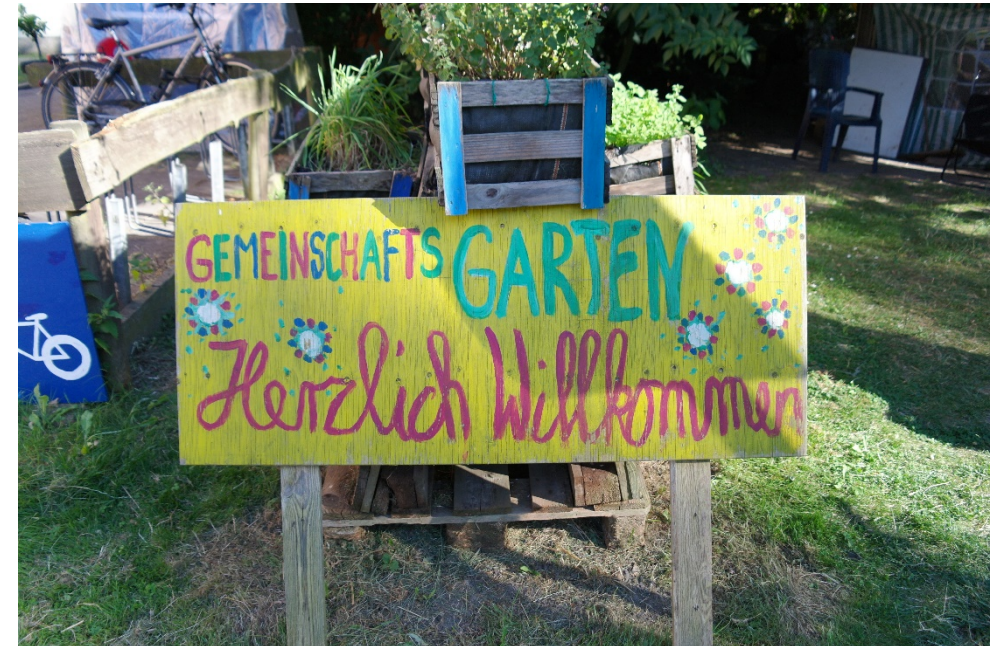 GEMEINSCHAFTS GARTEN
Herzlich Willkommen